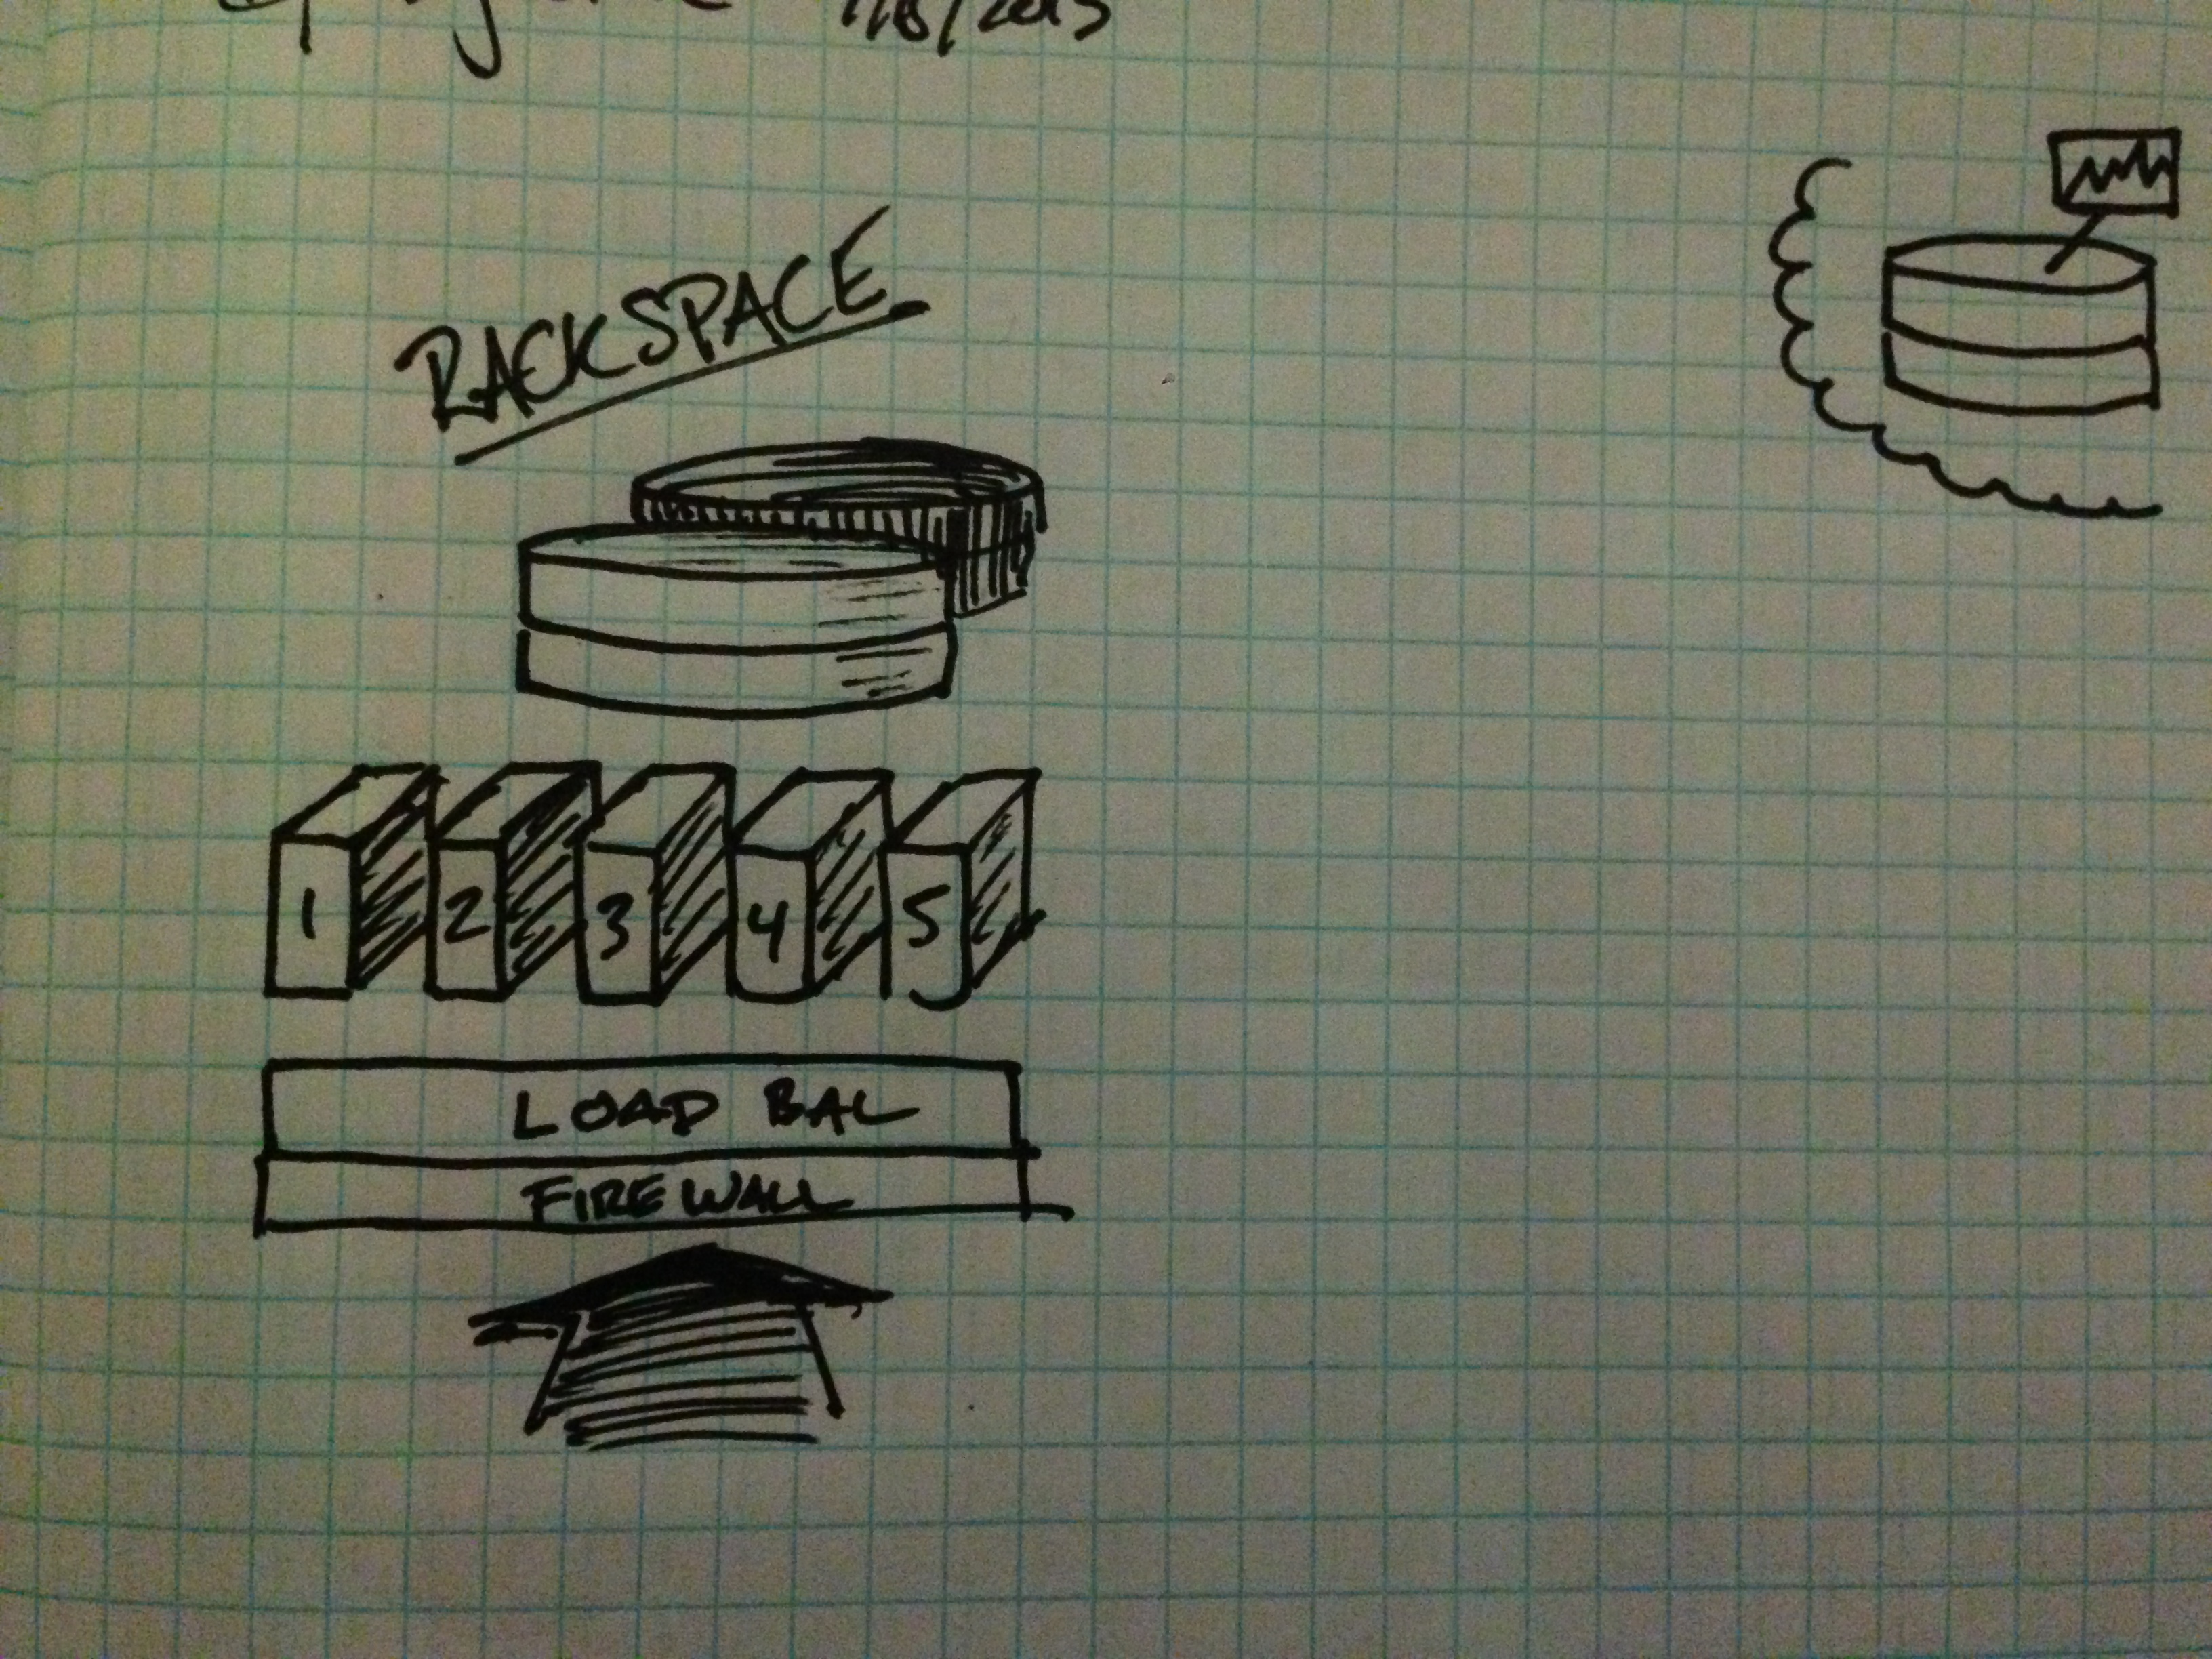 RACKSPACE
1 2 3 4 5
LOAD BAL
FIREWALL